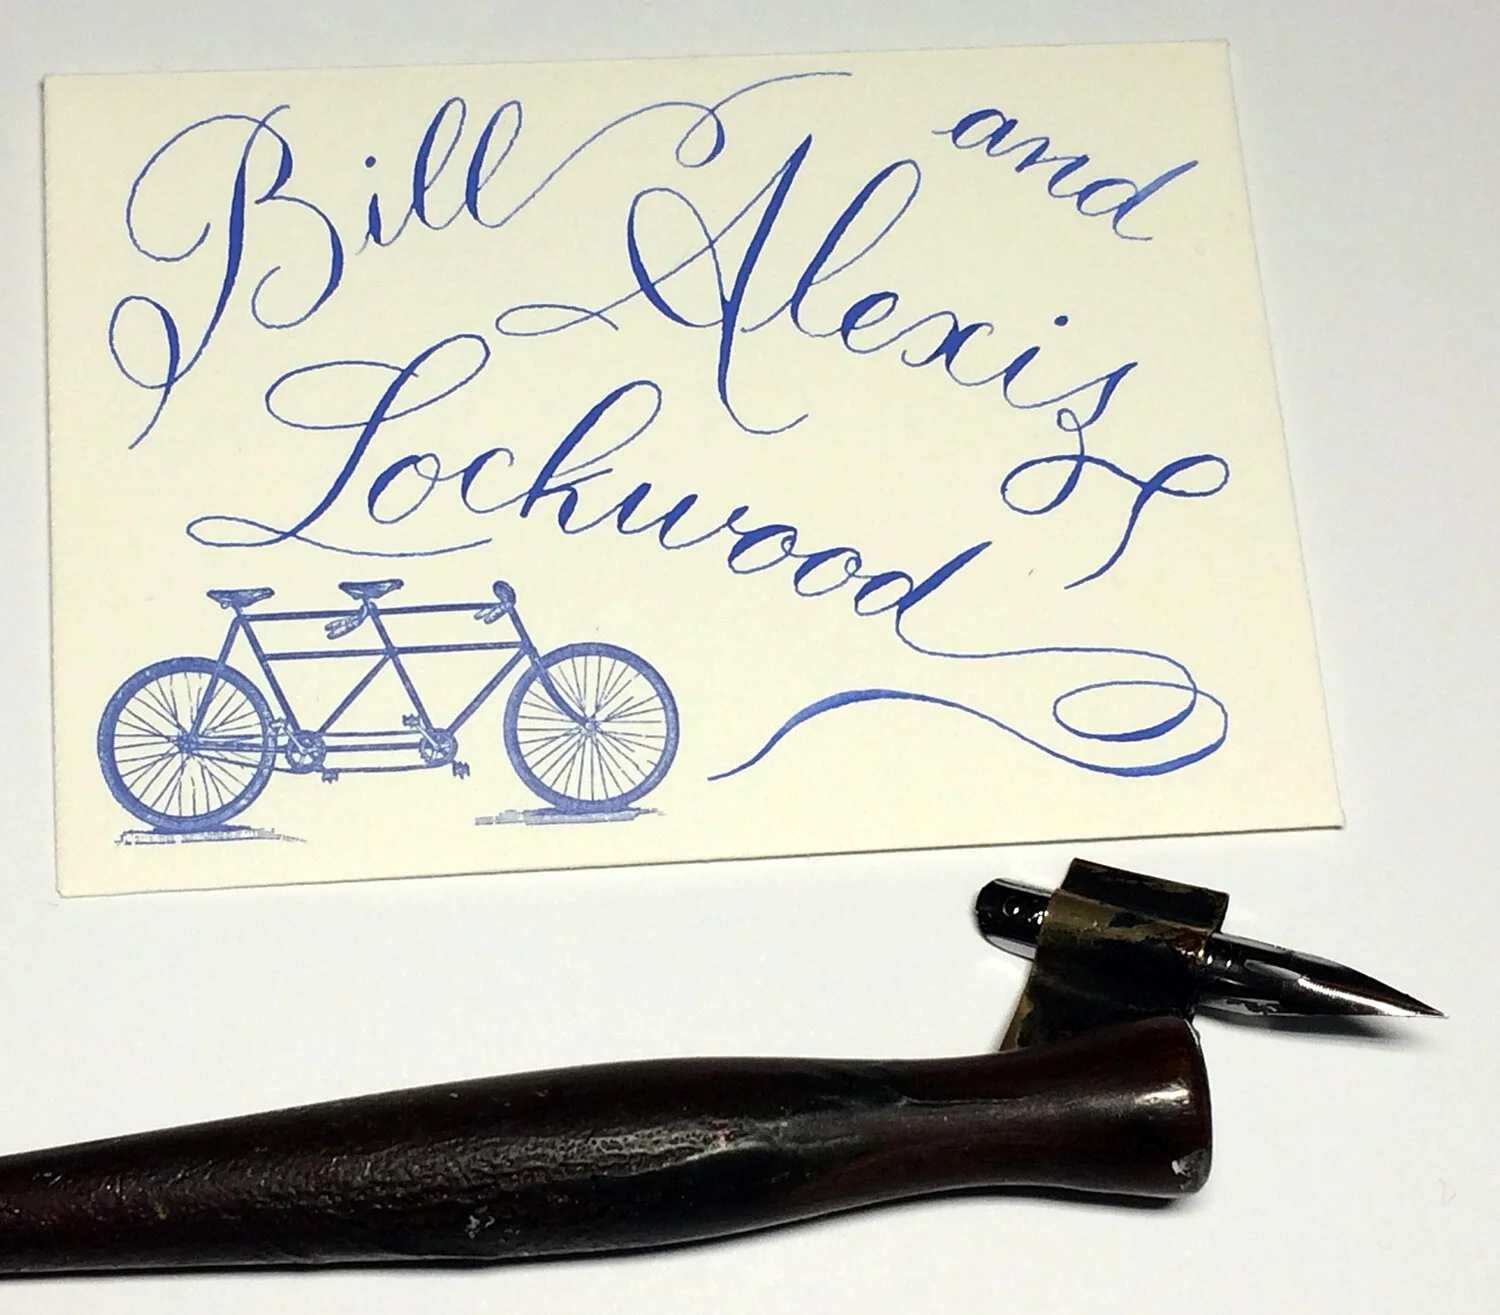 Bill and
Alexis
Lockwood